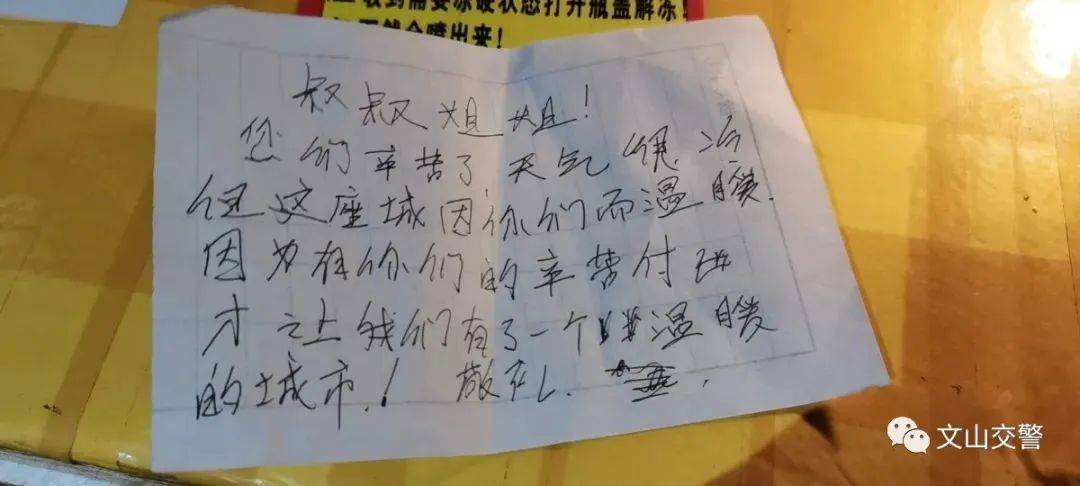 收到需要冻硬状态打开瓶盖解冻!
不然会喷出来!
叔叔姐姐!
您们辛苦了,天气很冷
但这座城因你们而温暖.
因为有你们的辛苦付出
才让我们有了一个温暖
的城市!敬礼.
文山交警